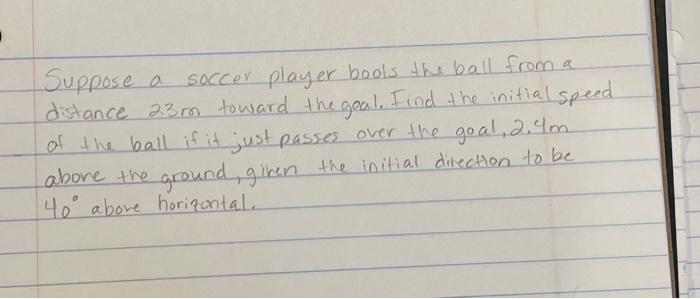 Suppose a soccer player boots the ball from a
distance 23m toward the goal. Find the initial speed
of the ball if it just passes over the goal, 2.4m
above the ground, given the initial direction to be
40° above horizontal.